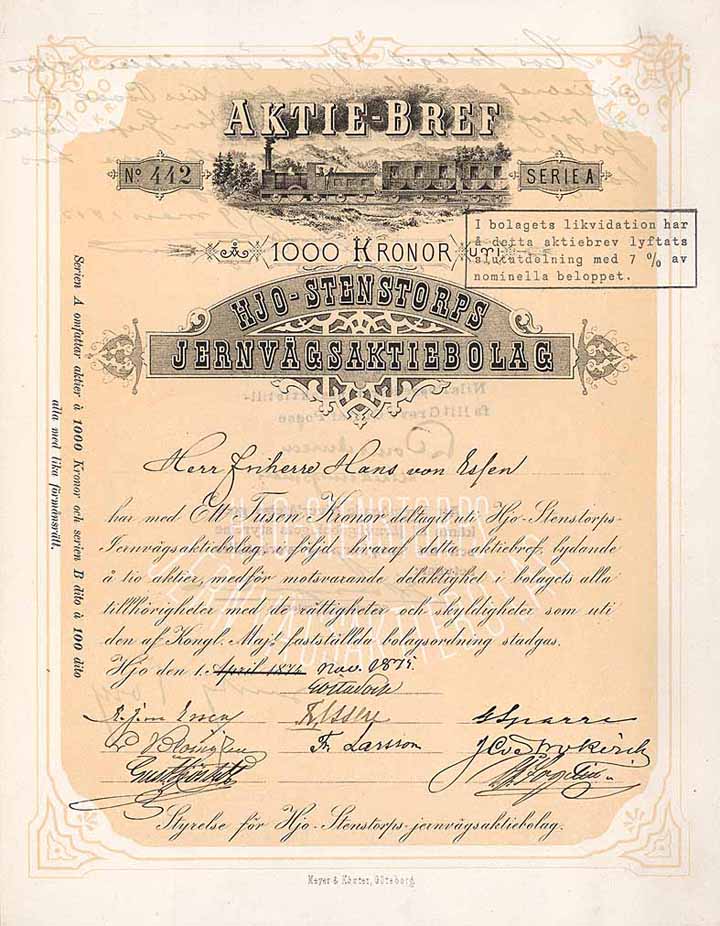 1000 KR
1000 KR
AKTIE-BREF
No 442
SERIE A
à 1000 KRONOR uti
I bolagets likvidation har
å detta aktiebrev lyftats
slututdelning med 7 % av
nominella beloppet.
HJO-STENSTORPS
JERNVÄGSAKTIEBOLAG
Serien A omfattar aktier à 1000 Kronor och serien B dito à 100 dito
alla med lika förmånsrätt.
Herr friherre Hans von Essen
har med Ett Tusen Kronor deltagit uti Hjo-Stenstorps-
Jernvägsaktiebolag, i följd hvaraf detta aktiebref, lydande
å tio aktier, medför motsvarande delaktighet i bolagets alla
tillhörigheter med de rättigheter och skyldigheter som uti
den af Kongl. Maj:t fastställda bolagsordning stadgas.
Hjo den 1. April 1874 nov. 1875
Essen
Essen
G Sparre
Fr. Larsson
Styrelse för Hjo-Stenstorps-jernvägsaktiebolag.
Meyer & Köster, Göteborg.